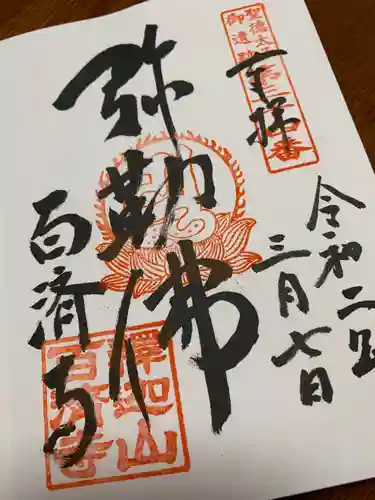 奉拝
聖徳太子
御遺跡第三十四番
令和二年
三月七日
弥勒佛
百済寺
釋迦山
百済寺